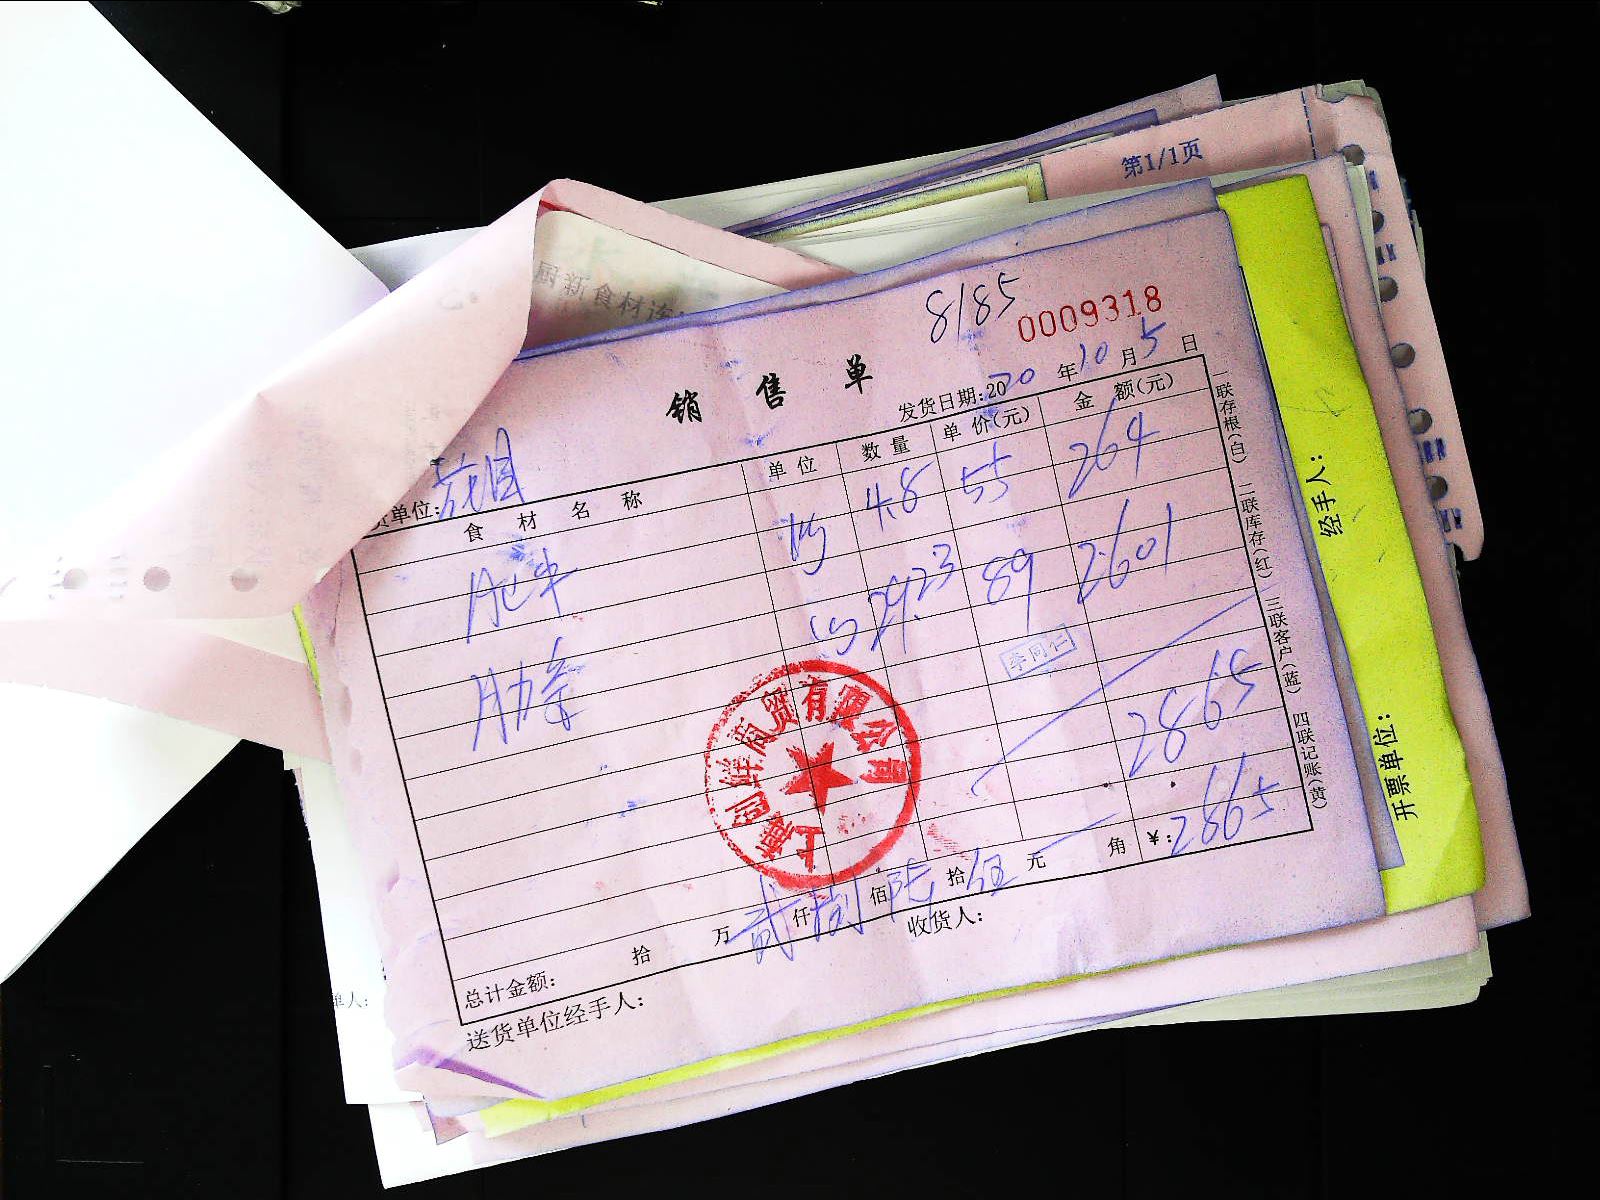 第1/1页
厨新食材连
8185
0009318
销售单
发货日期:2020年10月5日
货单位:花园
食材名称 单位 数量 单价(元) 金额(元)
肥牛 4.8 55 264
肋条 29.23 89 2601
李同仁
2865
总计金额: 拾 万 贰 仟 捌 佰 陆 拾 伍 元 角 ¥:2865
送货单位经手人: 收货人:
上海创鲜商贸有限公司
一联存根(白) 二联库存(红) 三联客户(蓝) 四联记账(黄)
经手人:
开票单位:
单人: